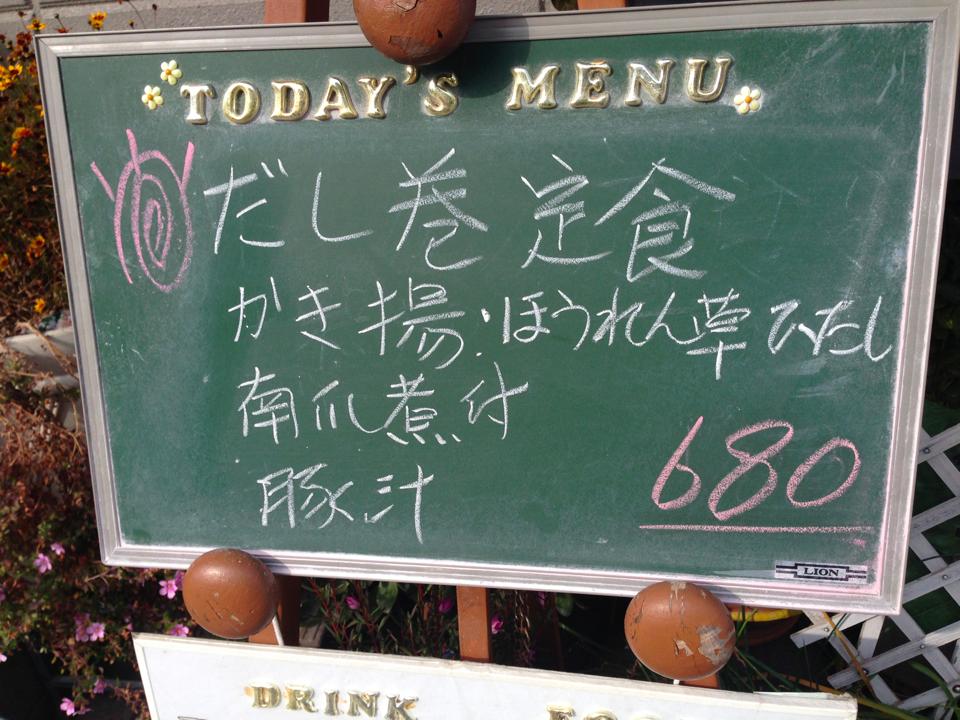 TODAY'S MENU
だし巻定食
かき揚・ほうれん草ひたし
南瓜煮付
豚汁
680
LION
DRINK